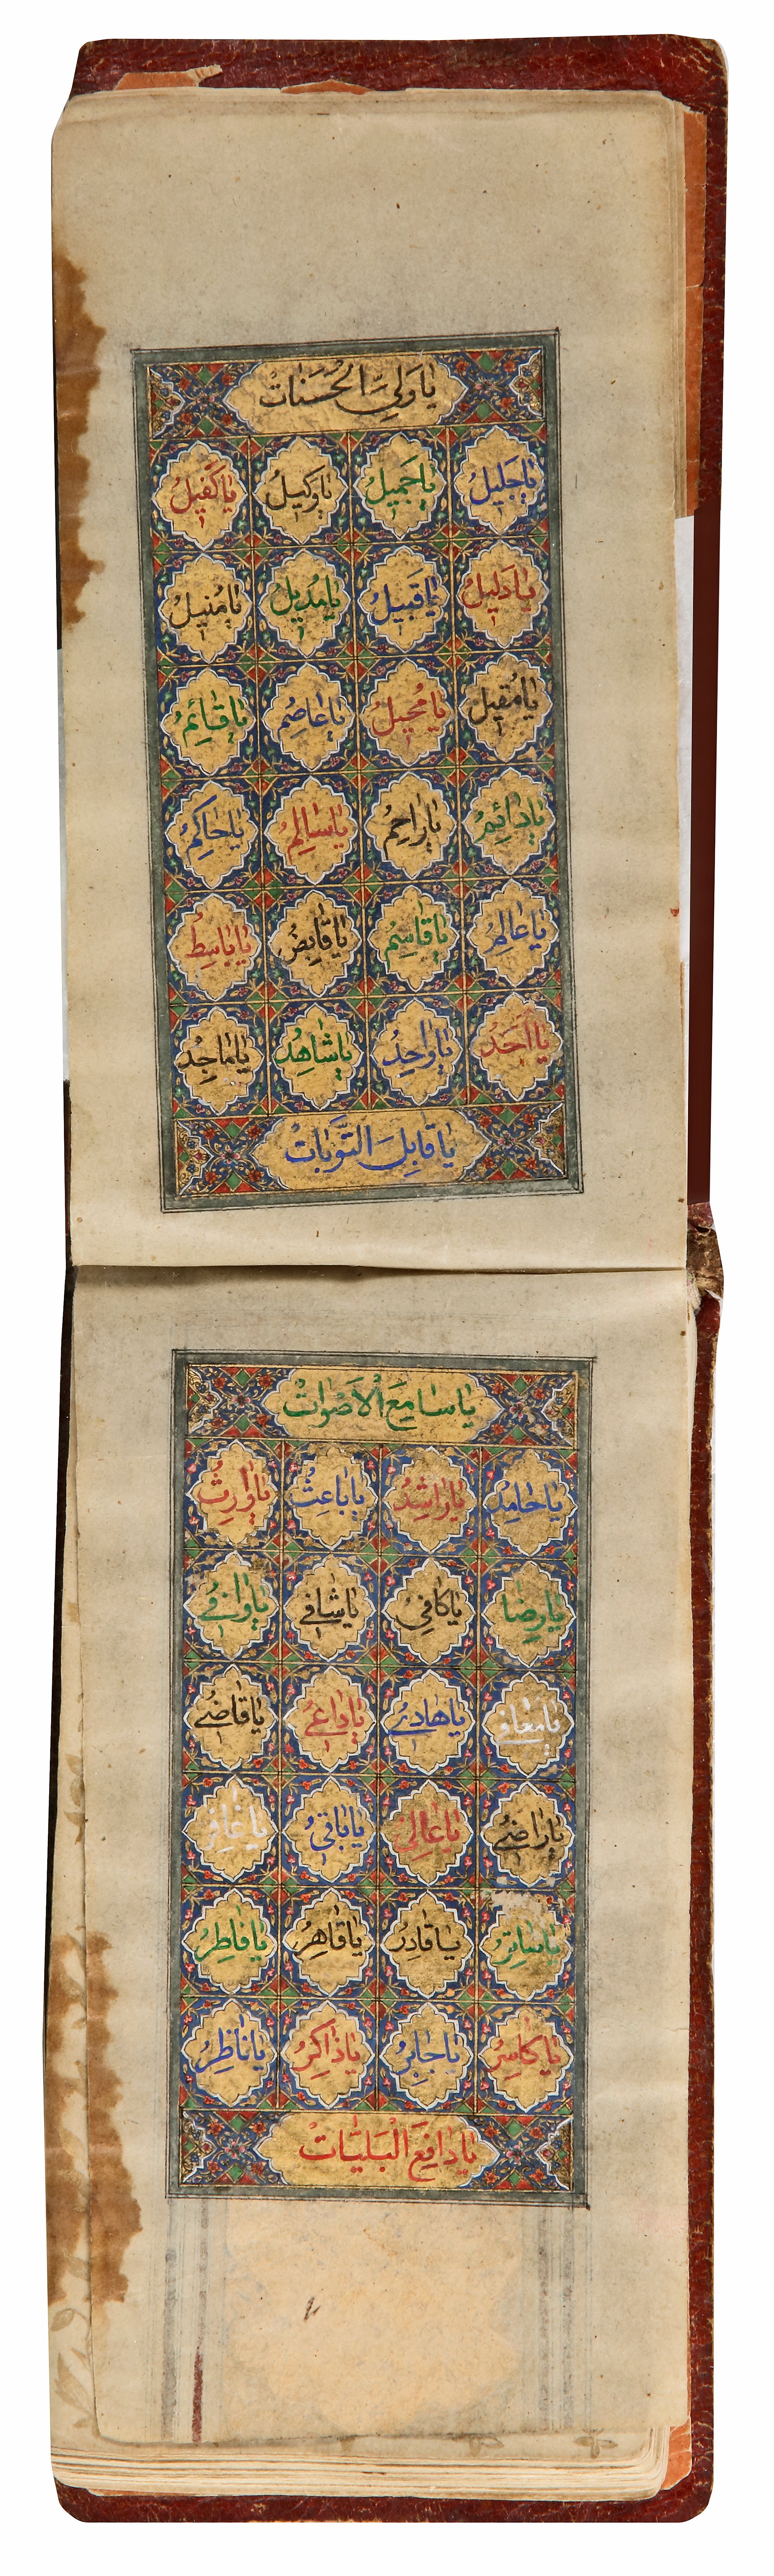 يَا وَلِيَّ الْحَسَنَاتِ
يَا جَلِيلُ يَا جَمِيلُ يَا وَكِيلُ يَا كَفِيلُ
يَا دَلِيلُ يَا قَبِيلُ يَا مُدِيلُ يَا مُنِيلُ
يَا مُقِيلُ يَا مُحِيلُ يَا عَاصِمُ يَا قَائِمُ
يَا دَائِمُ يَا رَاحِمُ يَا سَالِمُ يَا حَاكِمُ
يَا عَالِمُ يَا قَاسِمُ يَا قَابِضُ يَا بَاسِطُ
يَا اَحَدُ يَا وَاحِدُ يَا شَاهِدُ يَا مَاجِدُ
يَا قَابِلَ التَّوْبَاتِ
يَا سَامِعَ الْاَصْوَاتِ
يَا حَامِدُ يَا رَاشِدُ يَا بَاعِثُ يَا وَارِثُ
يَا رِضَا يَا كَافِي يَا شَافِي يَا وَافِي
يَا مُعَافِي يَا هَادِي يَا دَاعِي يَا قَاضِي
يَا رَاضِي يَا عَالِي يَا بَاقِي يَا غَافِرُ
يَا سَاتِرُ يَا قَادِرُ يَا قَاهِرُ يَا فَاطِرُ
يَا كَاسِرُ يَا جَابِرُ يَا ذَاكِرُ يَا نَاظِرُ
يَا دَافِعَ الْبَلِيَّاتِ